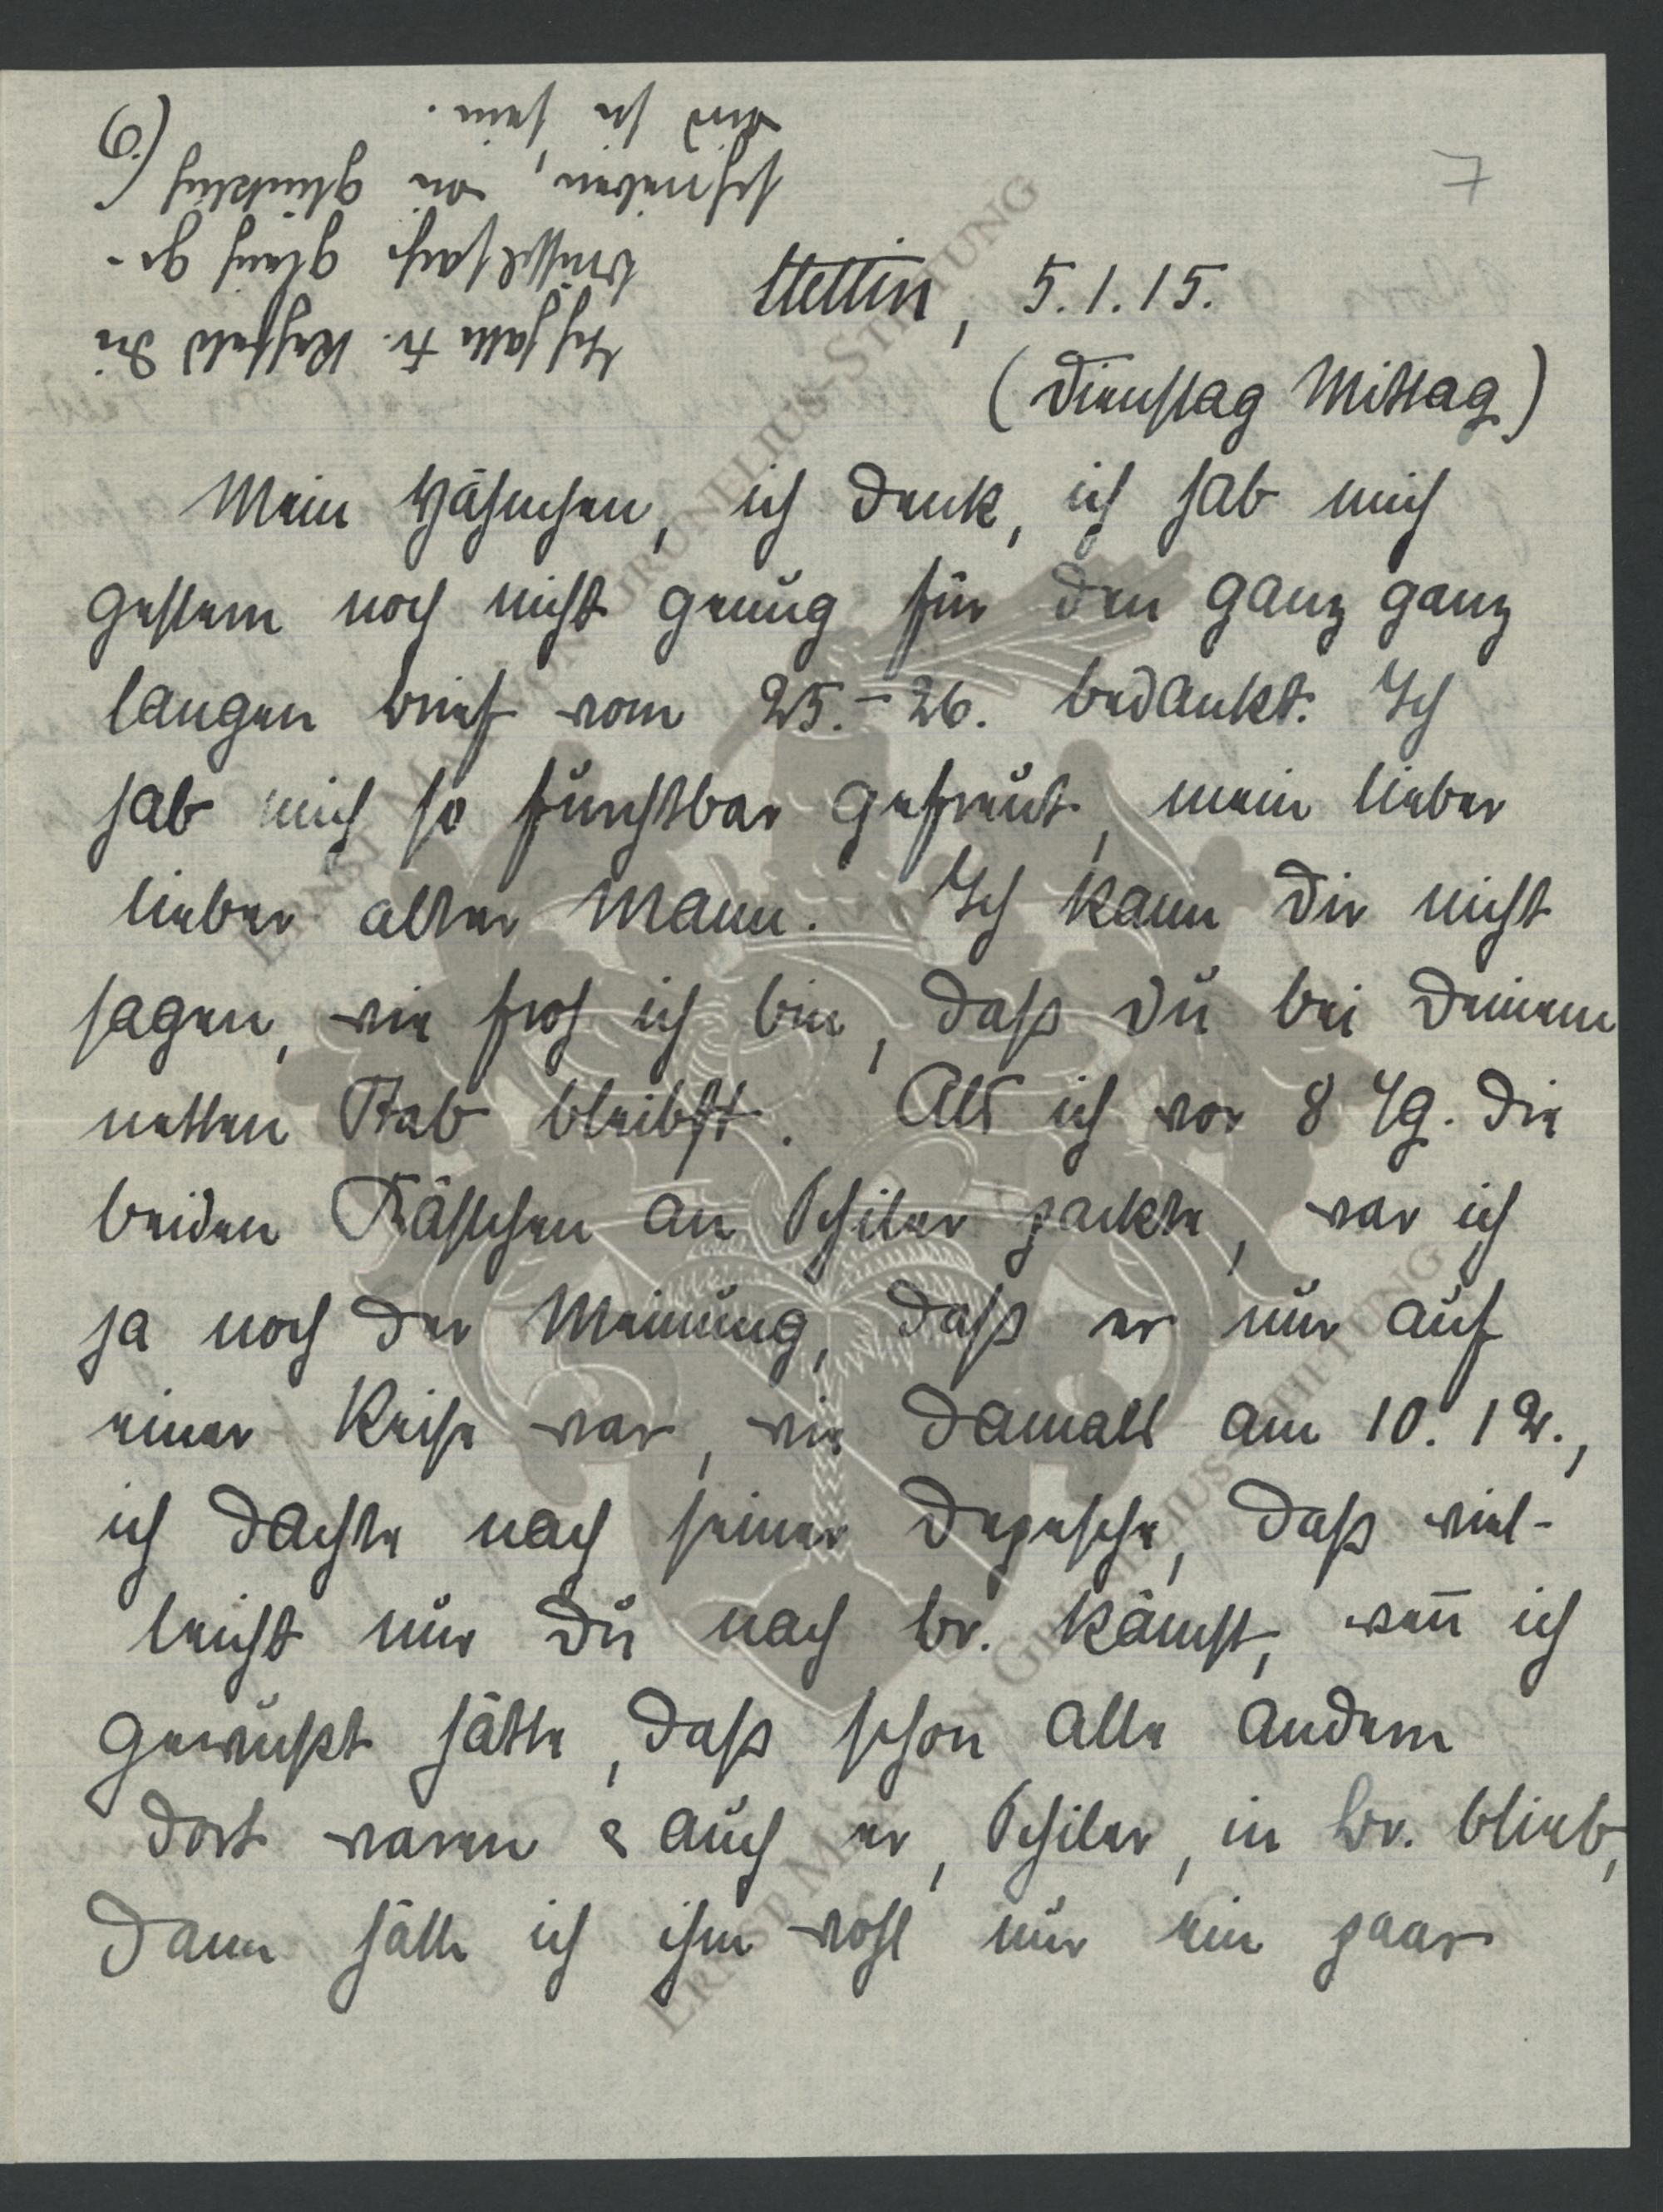 7
Stettin, 5.1.15.
(Dienstag Mittag)
Mein Häschen, ich denk, ich hab mich
gestern noch nicht genug für den ganz ganz
langen Brief vom 25.-26. bedankt. Ich
hab mich so furchtbar gefreut, mein lieber
lieber alter Mann. Ich kann Dir nicht
sagen, wie froh ich bin, daß Du bei Deinem
netten Stab bleibst. Als ich vor 8 Tg. die
beiden Kästchen an Schiler packte, war ich
ja noch der Meinung, daß er nur auf
einer Reise war, wie damals am 10.12.,
ich dachte nach seiner Depesche, daß viel-
leicht nur Du nach Br. kämst, wen̄ ich
gewußt hätte, daß schon alle andern
dort waren & auch er, Schiler, in Br. blieb,
dann hätte ich ihm wohl nur ein paar
Ich hatte Fr. die
gleich ge-
schrieben, wie glücklich (6)
wird sie sein.
ERNST MAX VON GRUNELIUS-STIFTUNG
ERNST MAX VON GRUNELIUS-STIFTUNG